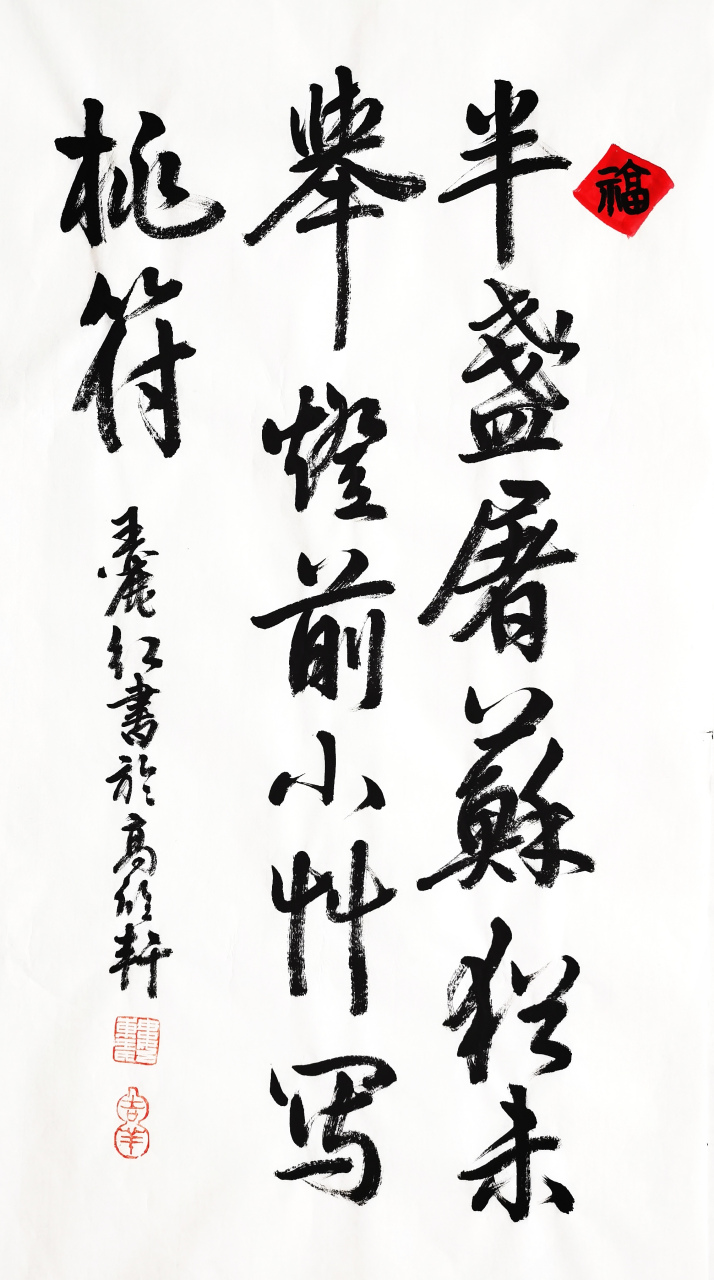 福
半盏屠蘇猶未
舉燈前小艸写
桃符
王麗红書於高欣軒
吉羊